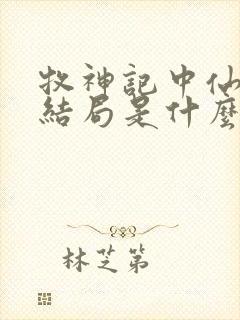 牧神記中仙
結局是什麼
林芝第